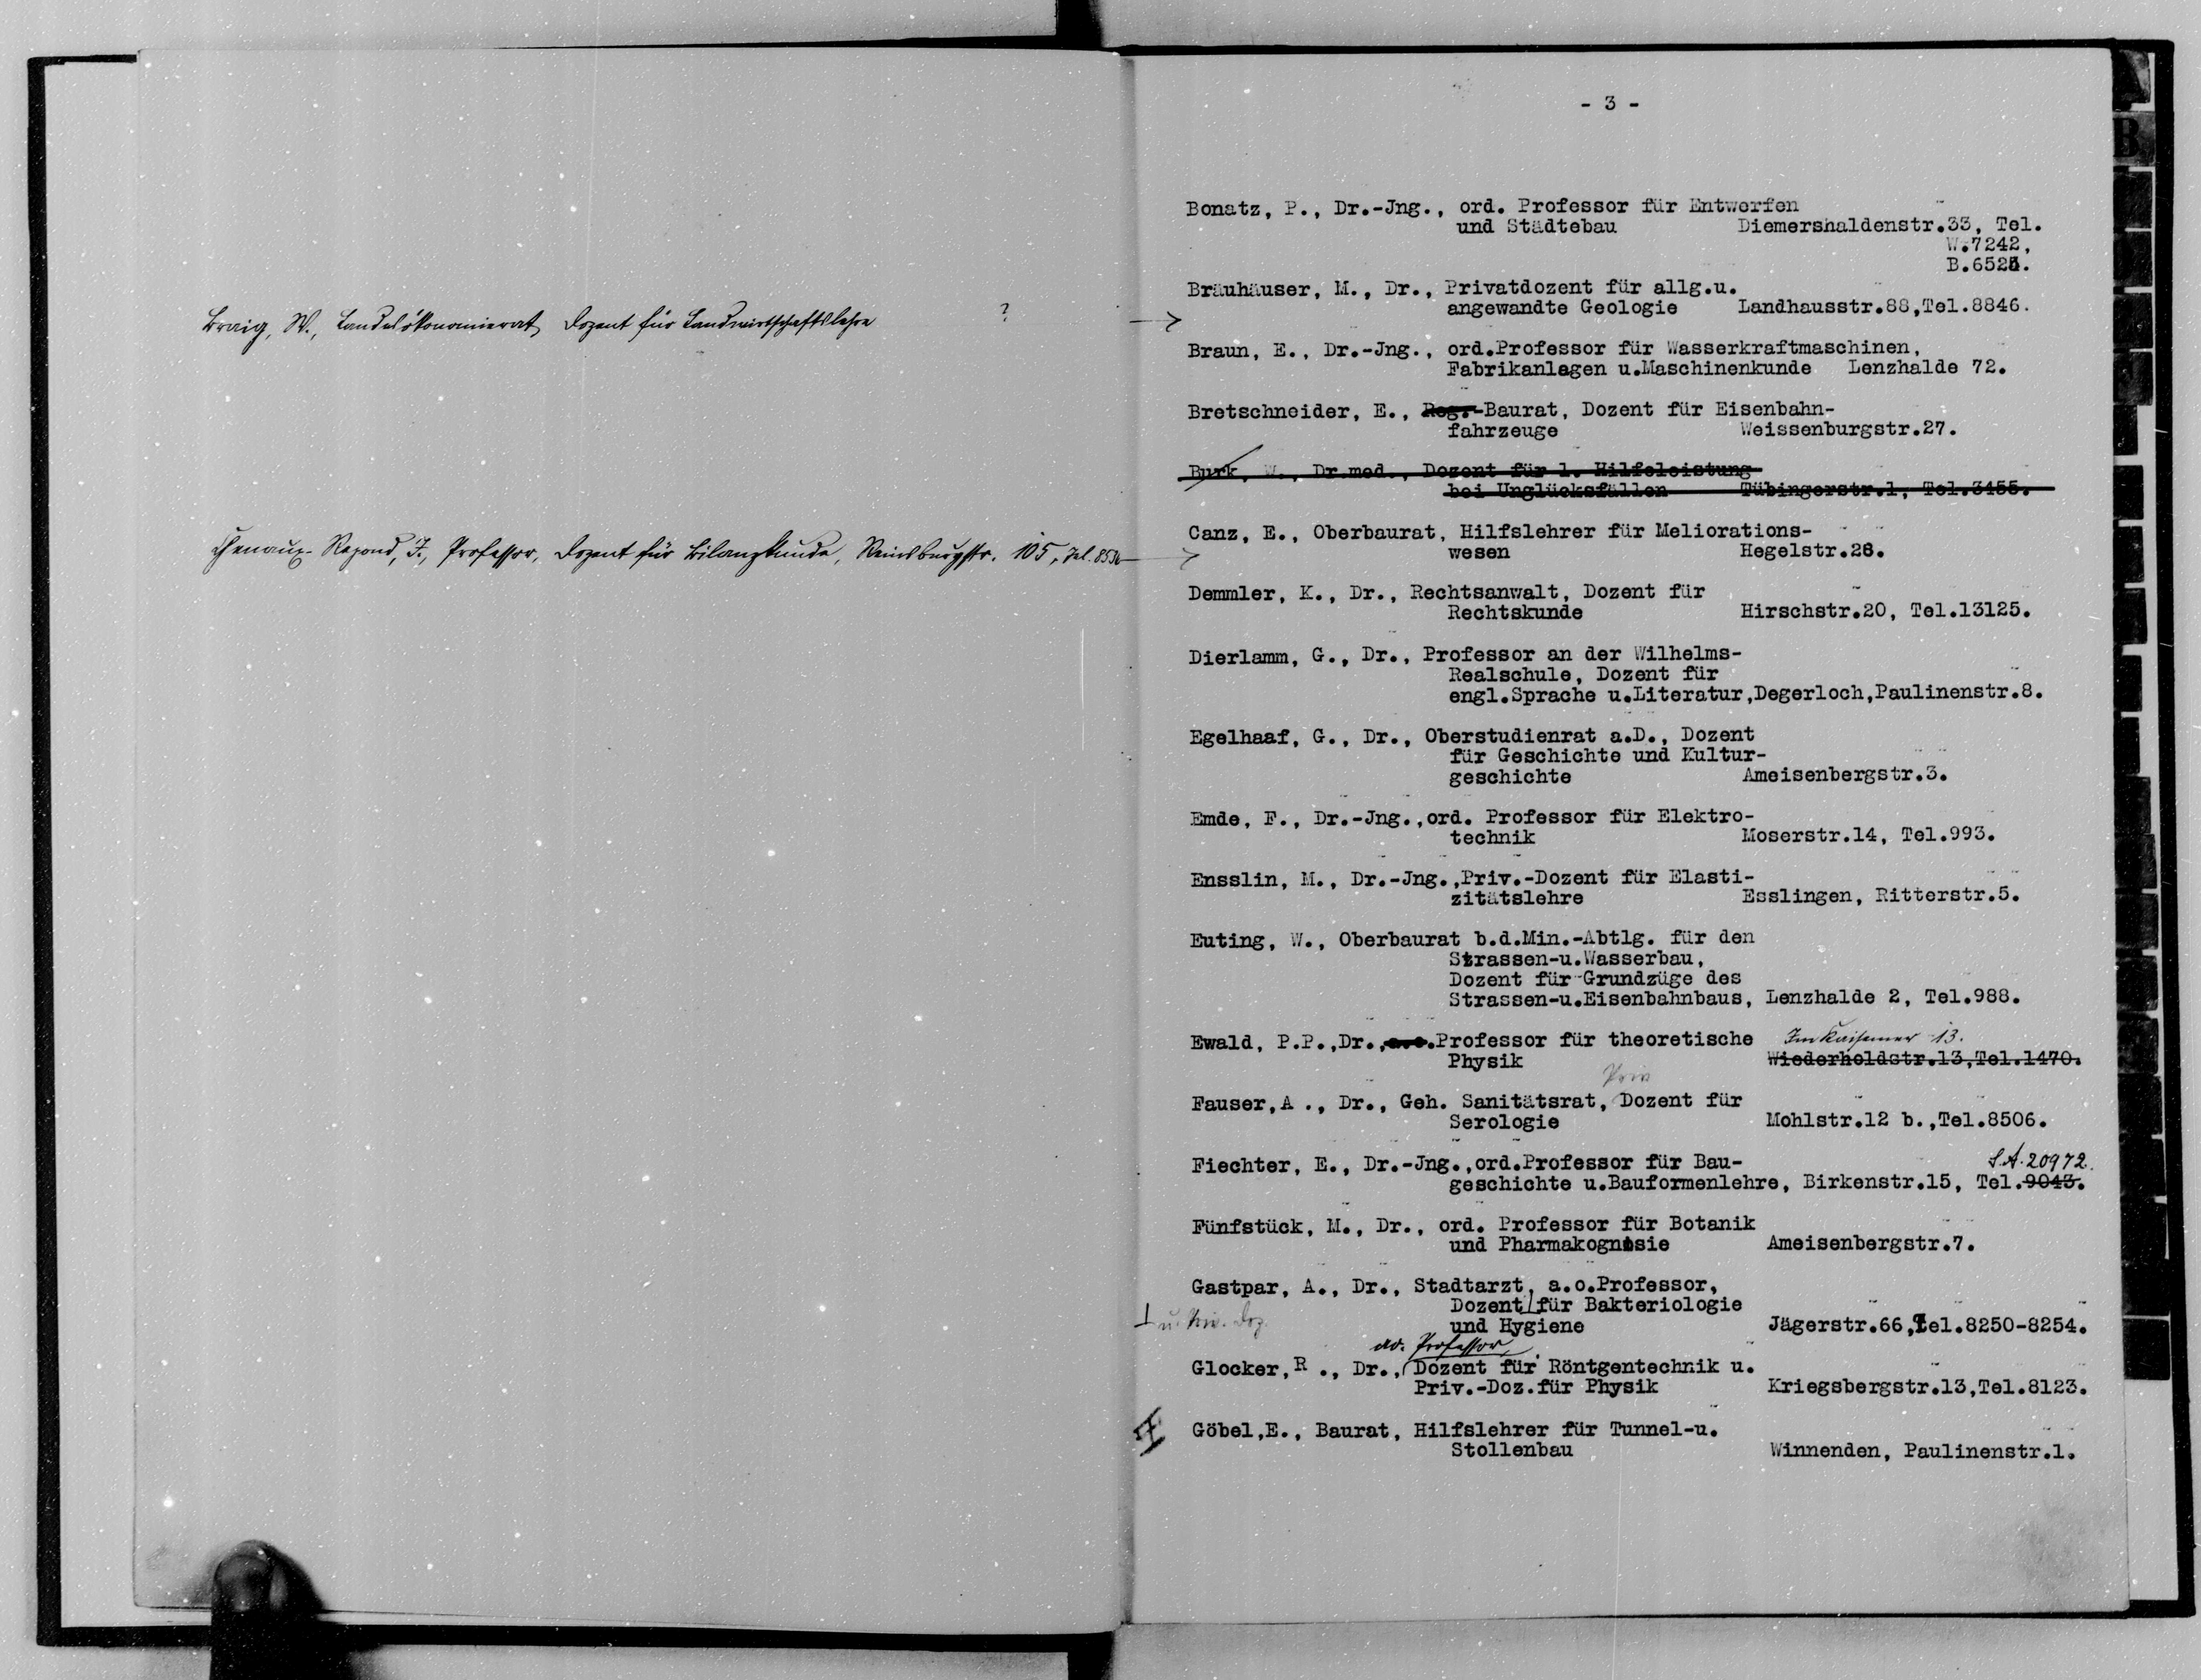 Braig, W., Landesökonomierat, Dozent für Landwirtschaftslehre ?
Chenaux-Repond, J., Professor, Dozent für Bilanzkunde, Reinsburgstr. 105, Tel.
- 3 -
Bonatz, P., Dr.-Jng., ord. Professor für Entwerfen
und Städtebau Diemershaldenstr.33, Tel.
W.7242,
B.6525.
Bräuhäuser, M., Dr., Privatdozent für allg.u.
angewandte Geologie Landhausstr.88,Tel.8846.
Braun, E., Dr.-Jng., ord.Professor für Wasserkraftmaschinen,
Fabrikanlagen u.Maschinenkunde Lenzhalde 72.
Bretschneider, E., Reg.-Baurat, Dozent für Eisenbahn-
fahrzeuge Weissenburgstr.27.
Burk, W., Dr.med., Dozent für 1. Hilfeleistung
bei Unglücksfällen Tübingerstr.1, Tel.3455.
Canz, E., Oberbaurat, Hilfslehrer für Meliorations-
wesen Hegelstr.28.
Demmler, K., Dr., Rechtsanwalt, Dozent für
Rechtskunde Hirschstr.20, Tel.13125.
Dierlamm, G., Dr., Professor an der Wilhelms-
Realschule, Dozent für
engl.Sprache u.Literatur,Degerloch,Paulinenstr.8.
Egelhaaf, G., Dr., Oberstudienrat a.D., Dozent
für Geschichte und Kultur-
geschichte Ameisenbergstr.3.
Emde, F., Dr.-Jng.,ord. Professor für Elektro-
technik Moserstr.14, Tel.993.
Ensslin, M., Dr.-Jng.,Priv.-Dozent für Elasti-
zitätslehre Esslingen, Ritterstr.5.
Euting, W., Oberbaurat b.d.Min.-Abtlg. für den
Strassen-u.Wasserbau,
Dozent für Grundzüge des
Strassen-u.Eisenbahnbaus, Lenzhalde 2, Tel.988.
Ewald, P.P.,Dr.,a.o.Professor für theoretische Im Kaisemer 13.
Physik Wiederholdstr.13,Tel.1470.
Priv
Fauser,A ., Dr., Geh. Sanitätsrat, Dozent für
Serologie Mohlstr.12 b.,Tel.8506.
Fiechter, E., Dr.-Jng.,ord.Professor für Bau- S.A.20972.
geschichte u.Bauformenlehre, Birkenstr.15, Tel.9043.
Fünfstück, M., Dr., ord. Professor für Botanik
und Pharmakognosie Ameisenbergstr.7.
Gastpar, A., Dr., Stadtarzt, a.o.Professor,
Dozent für Bakteriologie
u. Priv. Doz. und Hygiene Jägerstr.66,Tel.8250-8254.
ao. Professor,
Glocker,R ., Dr., Dozent für Röntgentechnik u.
Priv.-Doz.für Physik Kriegsbergstr.13,Tel.8123.
Göbel,E., Baurat, Hilfslehrer für Tunnel-u.
Stollenbau Winnenden, Paulinenstr.1.
B